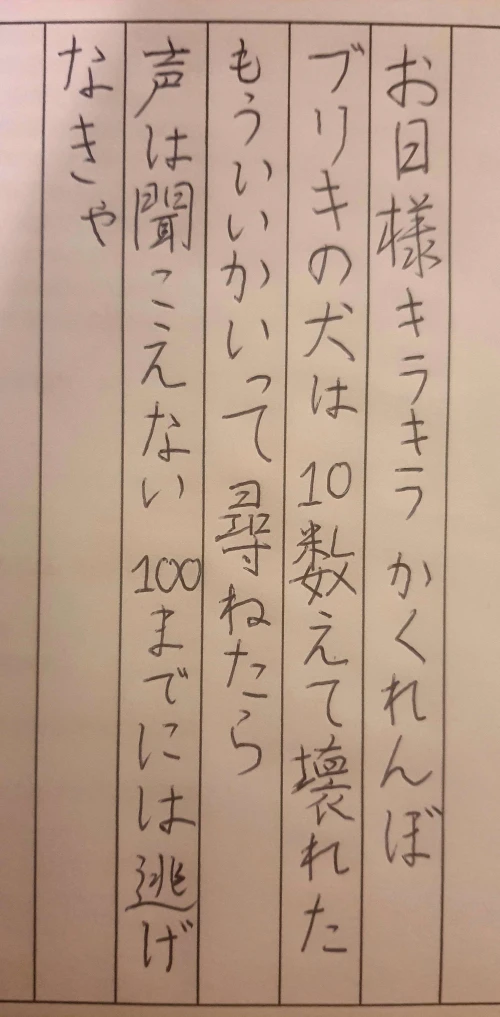 お日様キラキラ かくれんぼ
ブリキの犬は 10数えて壊れた
もういいかいって尋ねたら
声は聞こえない 100までには逃げ
なきゃ